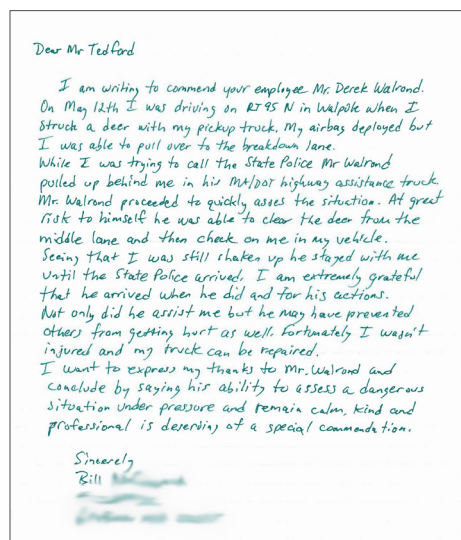 Dear Mr Tedford
I am writing to commend your employee Mr. Derek Walrond.
On May 12th I was driving on RT 95 N in Walpole when I
struck a deer with my pickup truck. My airbag deployed but
I was able to pull over to the breakdown lane.
While I was trying to call the State Police Mr Walrond
pulled up behind me in his MA/DOT highway assistance truck.
Mr. Walrond proceeded to quickly asses the situation. At great
risk to himself he was able to clear the deer from the
middle lane and then check on me in my vehicle.
Seeing that I was still shaken up he stayed with me
until the State Police arrived. I am extremely grateful
that he arrived when he did and for his actions.
Not only did he assist me but he may have prevented
others from getting hurt as well. Fortunately I wasn't
injured and my truck can be repaired.
I want to express my thanks to Mr. Walrond and
conclude by saying his ability to assess a dangerous
situation under pressure and remain calm, kind and
professional is deserving of a special commendation.
Sincerely
Bill